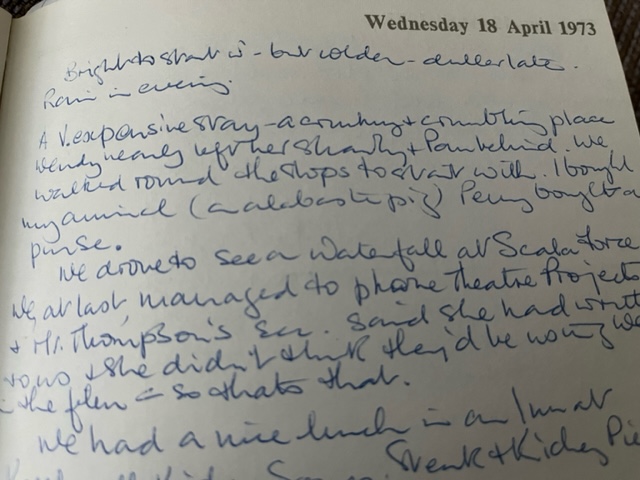 Wednesday 18 April 1973
Bright to start - but colder - duller late.
Rain in evening.
A V. expensive stay - a crumbling place
Wendy nearly left her & Pam behind. We
walked round the shops to start with. I bought
my animal (an alabaster pig) Penny bought a
purse.
We drove to see a Waterfall at Scala Force
We, at last, managed to phone Theatre Projects
& Mr. Thompson's Sec. said she had
to us & she didn't think they'd be
the film - so thats that.
We had a nice lunch in an Inn at
Steak & Kidney Pie